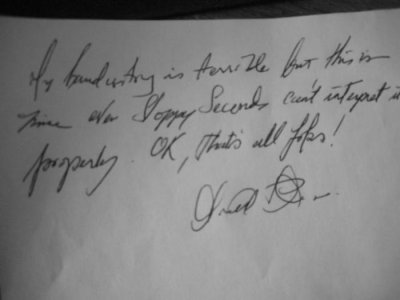 My handwriting is terrible but this is
mine even Sloppy Seconds can't interpret it
properly. OK, that's all folks!